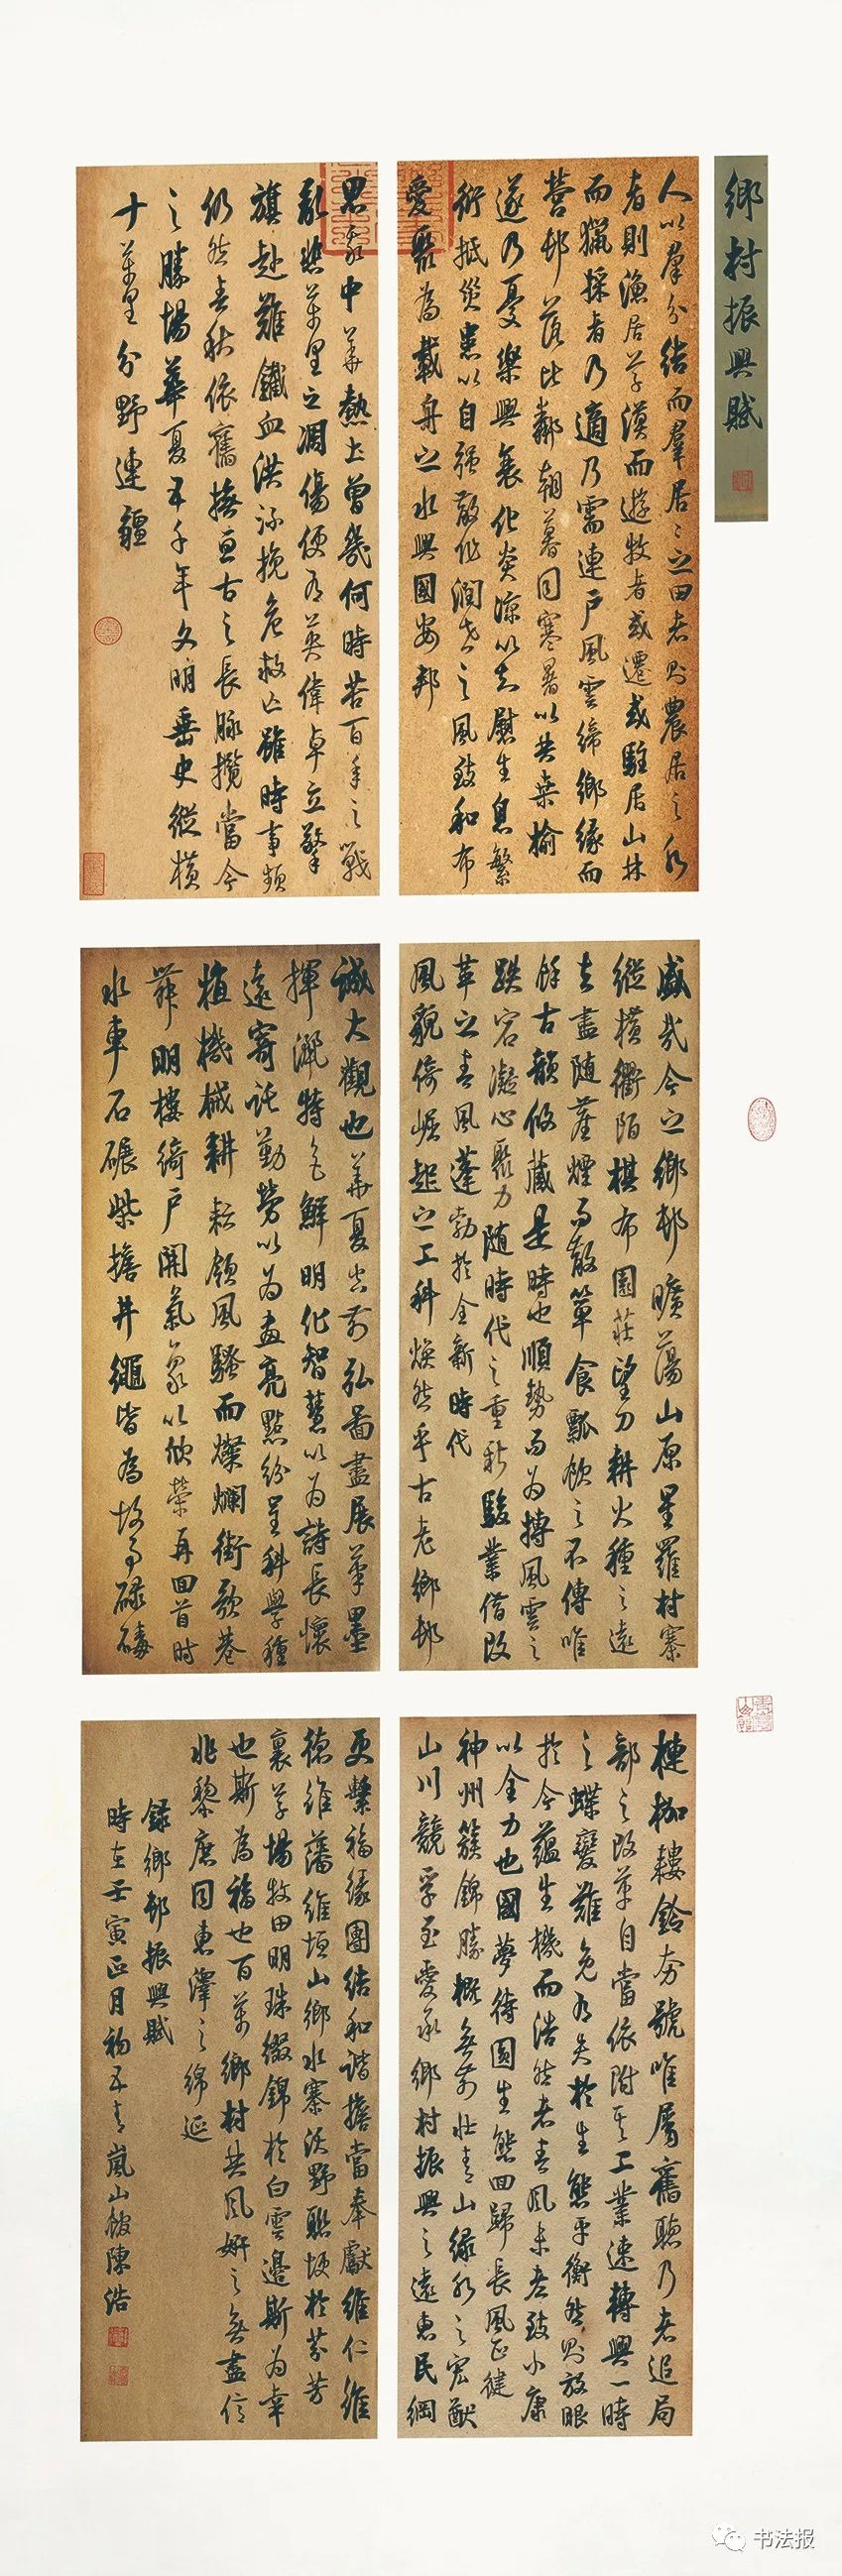 鄉村振興賦
人以羣分結而羣居居之田者則農居之水
者則漁居草漠而遊牧者或遷或駐居山林
而獵採者乃適乃需連戶風雲締鄉緣而
營邨落比鄰朝暮同寒暑以共桑榆
遂乃憂樂興衰化炎涼以共慰生息繁
衍抵災患以自強散作潤世之風致和布
愛聚為載舟之水興國安邦
思我中華熱土曾幾何時苦百年之戰
亂愁萬里之凋傷便有英偉卓立擎
旗赴難鐵血洪流挽危救亡雖時事頻
仍然春秋依舊接亘古之長脉攬當今
之勝場華夏五千年文明垂史縱橫
十萬里分野連疆
盛哉今之鄉邨曠蕩山原星羅村寨
縱橫衢陌棋布園莊望刀耕火種之遠
去盡隨薤煙而散簞食瓢飲之不傳唯
餘古韻攸藏是時也順勢而為摶風雲之
跌宕凝心聚力隨時代之重新駿業借改
革之春風蓬勃於全新時代
風貌倚崛起之工科煥然乎古老鄉邨
誠大觀也華夏空前弘圖盡展筆墨
揮灑特色鮮明化智慧以為詩長懷
遠寄託勤勞以為畫亮點紛呈科學種
植機械耕耘領風騷而燦爛街歌巷
舞明樓綺戶開氣象以欣榮再回首時
水車石碾柴擔井繩皆為故事碌碡
槤枷耬鈴夯號唯屬舊聽乃者追局
部之改革自當依附其工業速轉興一時
之蝶變難免有失於生態平衡然則放眼
於今蘊生機而浩然者春風未老致小康
以全力也國夢待圓生態回歸長風正健
神州簇錦勝概無前壯青山綠水之宏猷
山川競孚至愛承鄉村振興之遠惠民綱
更繫福緣團結和諧擔當奉獻維仁維
德維藩維垣山鄉水寨沃野聚埂於芬芳
裏草場牧田明珠綴錦於白雲邊斯為幸
也斯為福也百萬鄉村共風妍之無盡億
兆黎庶同惠澤之綿延
錄鄉邨振興賦
時在壬寅正月初五青嵐山館陳浩
书法报